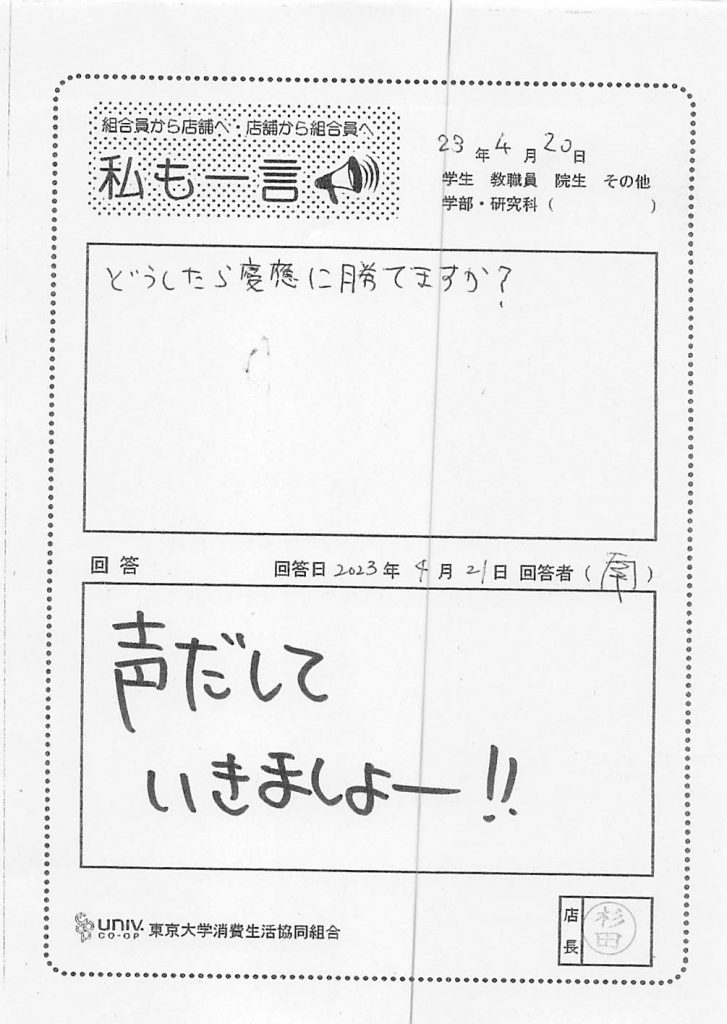 組合員から店舗へ・店舗から組合員へ
私も一言
23年4月20日
学生 教職員 院生 その他
学部・研究科（ ）
どうしたら慶應に勝てますか？
回答
回答日2023年4月21日 回答者（ ）
声だして
いきましょー!!
UNIV.
CO-OP
東京大学消費生活協同組合
店長
杉田